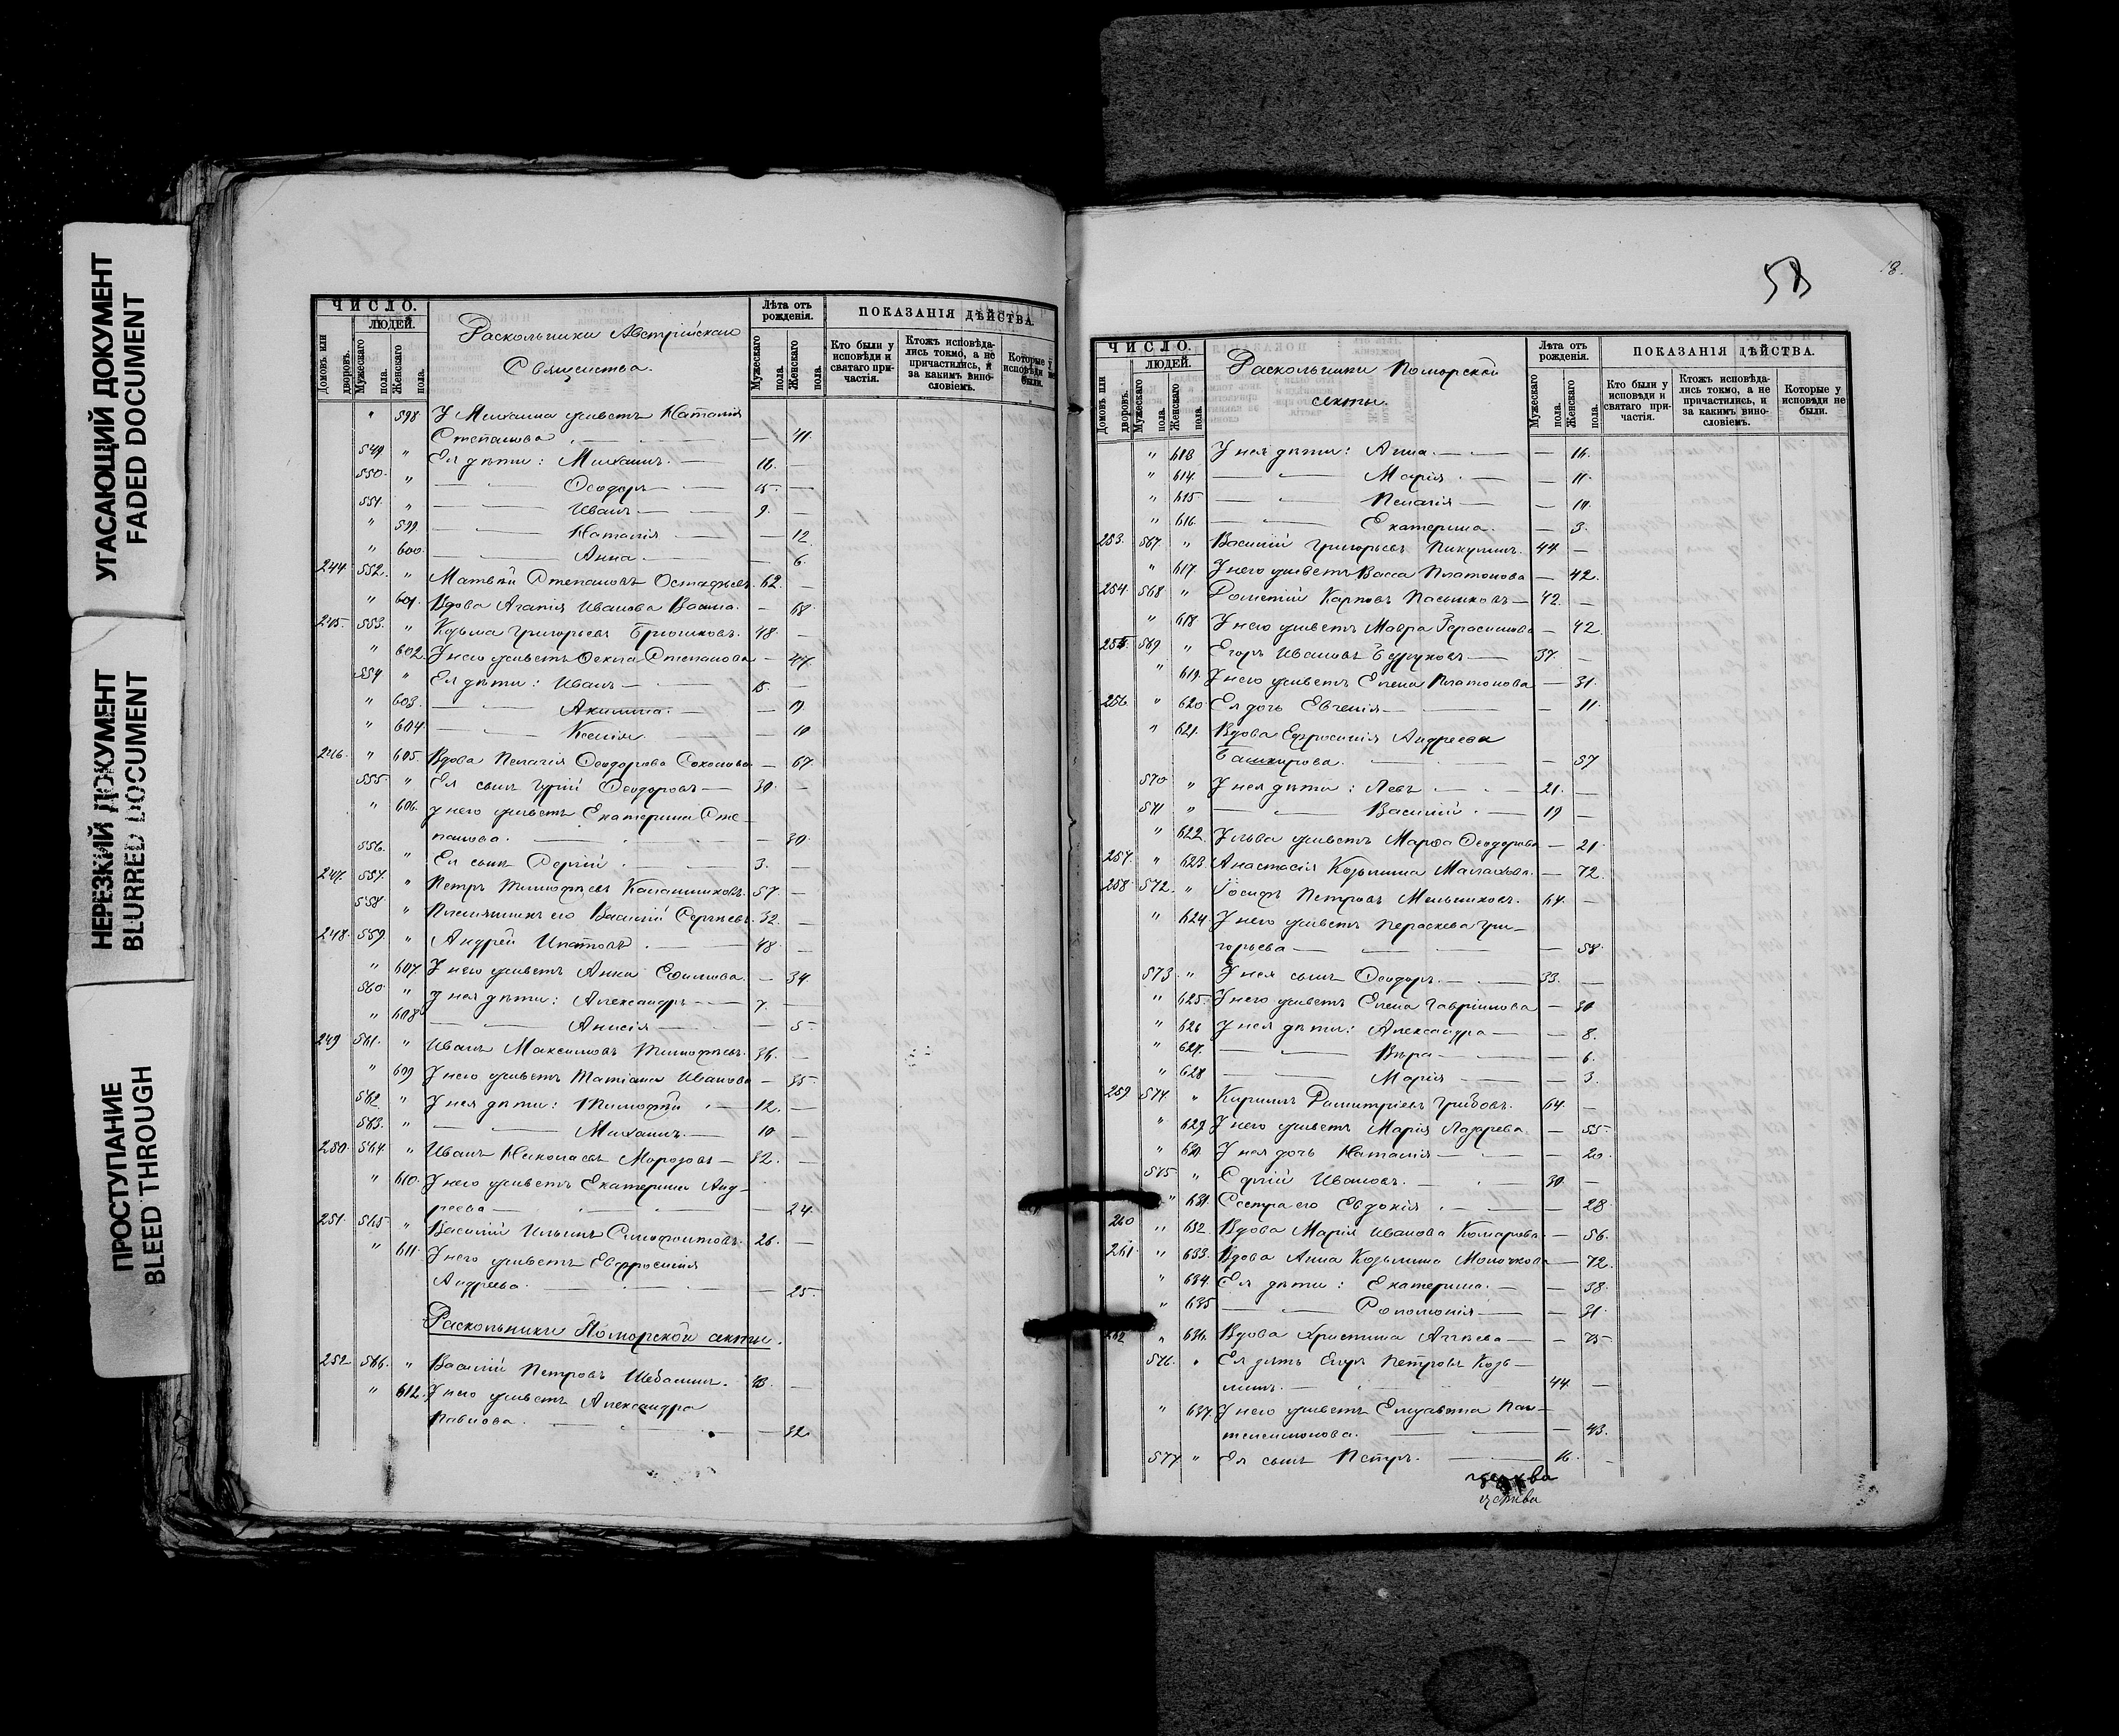 УГАСАЮЩИЙ ДОКУМЕНТ
FADED DOCUMENT
НЕРЕЗКИЙ ДОКУМЕНТ
BLURRED DOCUMENT
ПРОСТУПАНИЕ
BLEED THROUGH
ЧИСЛО.
ЛЮДЕЙ.
Домовъ или дворовъ.
Мужескаго пола.
Женскаго пола.
Раскольники Австрійскаго
Священства.
Лѣта отъ рожденія.
Мужескаго пола.
Женскаго пола.
ПОКАЗАНІЯ ДѢЙСТВА.
Кто были у исповѣди и святаго причастія.
Ктожъ исповѣдались токмо, а не причастились, и за какимъ винословіемъ.
Которые у исповѣди не были.
" 598 У Михаила живетъ Наталія
Степанова — 41.
549 " Ея дѣти: Михаилъ — 16. —
550. " Ѳеодоръ — 15. —
551. " Иванъ — 9. —
" 599. Наталія — 12.
" 600. Анна. — 6.
244. 552. " Матвѣй Степановъ Остафьевъ. 62. —
" 601. Вдова Агапія Иванова — 68.
245. 553. " Козьма Григорьевъ Брюшковъ. 48. —
" 602. У него живетъ Ѳекла Степанова — 47.
554 " Ея дѣти: Иванъ — 15. —
" 603. Акилина. —
" 604. Ксенія. — 10
246. " 605. Вдова Пелагія Ѳеодорова Соколова — 67.
555. " Ея сынъ Гурій Ѳеодоровъ — 30. —
" 606. У него живетъ Екатерина Сте-
панова. — 30.
556. " Ея сынъ Сергій — 3. —
247. 557. " Петръ Тимофѣевъ Калашниковъ. 57. —
558 " Племянникъ его Василій Сергѣевъ. 32. —
248. 559. " Андрей Ипатовъ. — 48. —
" 607. У него живетъ Анна Ефимова. — 34.
560. " У нея дѣти: Александръ — 7. —
" 608 Анисія — 5
249 561. " Иванъ Максимовъ Тимофѣевъ. 36. —
" 609 У него живетъ Татіана Иванова — 35.
562. " У нея дѣти: Тимофей — 12. —
563. " Михаилъ. — 10 —
250. 564. " Иванъ Николаевъ Морозовъ — 32. —
" 610. У него живетъ Екатерина Анд-
реева — 24.
251. 565. " Василій Ильинъ 26. —
" 611. У него живетъ Евфросинія
Андреева. — 25.
Раскольники Поморской секты.
252 566. " Василій Петровъ Шебалинъ. —
" 612. У него живетъ Александра
Павлова. — 32.
58
18.
ЧИСЛО.
ЛЮДЕЙ.
Домовъ или дворовъ.
Мужескаго пола.
Женскаго пола.
Раскольники Поморской
секты.
Лѣта отъ рожденія.
Мужескаго пола.
Женскаго пола.
ПОКАЗАНІЯ ДѢЙСТВА.
Кто были у исповѣди и святаго причастія.
Ктожъ исповѣдались токмо, а не причастились, и за какимъ винословіемъ.
Которые у исповѣди не были.
" 613 У нея дѣти: Анна. — 16.
" 614. Марія — 11.
" 615 Пелагія — 10.
" 616. Екатерина. — 3.
253. 567. " Василій Григорьевъ Пикулинъ. 44. —
" 617. У него живетъ Васса Платонова — 42.
254. 568 " Дометій Карповъ Пасынковъ — 42. —
" 618 У него живетъ Мавра Герасимова — 42.
255. 569 " Егоръ Ивановъ — 37. —
" 619. У него живетъ Елена Платонова — 31.
256. " 620. Ея дочь Евгенія — 11.
" 621. Вдова Ефросинія Андреева
Башкирова. — 57
570 " У нея дѣти: Левъ — 21. —
571 " Василій. — 19 —
" 622. У Льва живетъ Марѳа Ѳеодорова — 21.
257. " 623. Анастасія Козьмина — 72.
258. 572. " Іосифъ Петровъ Мельниковъ. 64. —
" 624. У него живетъ Параскева Гри-
горьева — 58.
573 " У нея сынъ Ѳеодоръ. — 33. —
" 625. У него живетъ Елена Гавріилова — 30
" 626 У нея дѣти: Александра — 8.
" 627. Вѣра — 6.
" 628 Марія — 3.
259 574. " Кириллъ Димитріевъ Грибовъ. 64. —
" 629 У него живетъ Марія Лазарева. — 55.
" 630. У нея дочь Наталія — 20.
575 " Сергій Ивановъ. — 30. —
" 631. Сестра его Евдокія — 28.
260 " 632. Вдова Марія Иванова Комарова. — 56.
261. " 633. Вдова Анна Козьмина Молочкова — 72.
" 634. Ея дѣти: Екатерина. — 38.
" 635 Соломонія — 31.
262 " 636. Вдова Христина Агѣева — 75.
576. " Ея зять Егоръ Петровъ Козь-
минъ. — 44. —
" 637 У него живетъ Елизавета Пан-
телеимонова. — 43.
577 " Ея сынъ Петръ. — 16. —